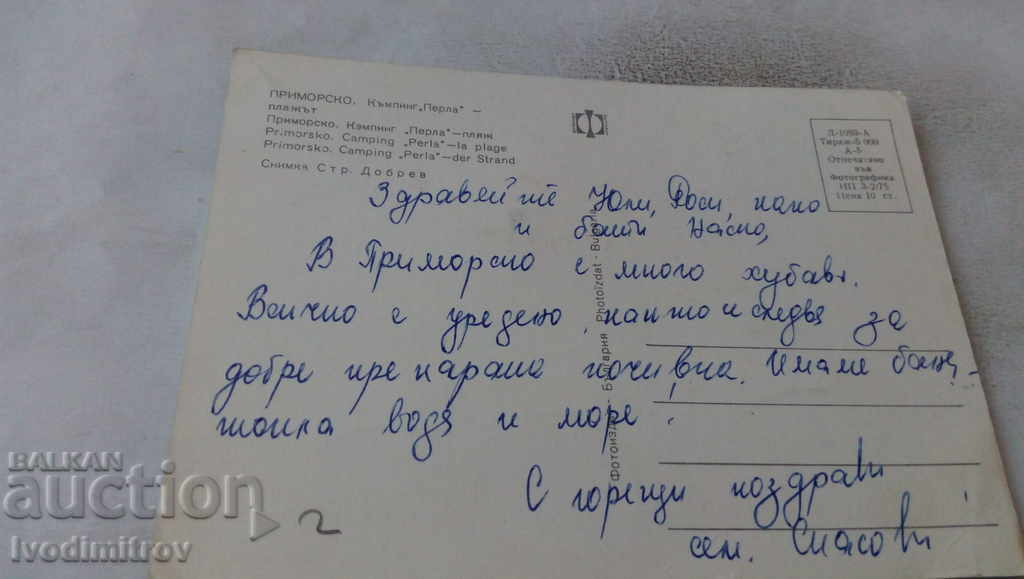 ПРИМОРСКО. Къмпинг „Перла" —
плажът
Приморско. Кэмпинг „Перла"—пляж
Primorsko. Camping „Perla"—la plage
Primorsko. Camping „Perla"—der Strand
Снимка Стр. Добрев
Д-1089-А
Тираж-5 000
А-5
Отпечатано
във
Фотографика
НП 3-2/75
Цена 10 ст.
Здравейте Юли, Роси, како
и бати Наско,
В Приморско е много хубаво.
Всичко е уредено както и следва за
добре прекарана почивка. Имаме
вода и море.
С горещи поздрави
сем. Спасови
Фотоиздат - България Photoizdat - Bulgaria
2
BALKAN
auction
Ivodimitrov